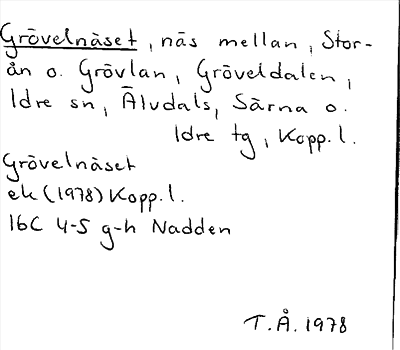 Grövelnäset, näs mellan, Stor-
ån o. Grövlan, Gröveldalen,
Idre sn, Älvdals, Särna o.
Idre tg, Kopp. l.
Grövelnäset
ek (1978) Kopp. l.
16C 4-5 g-h Nadden
T.Å. 1978